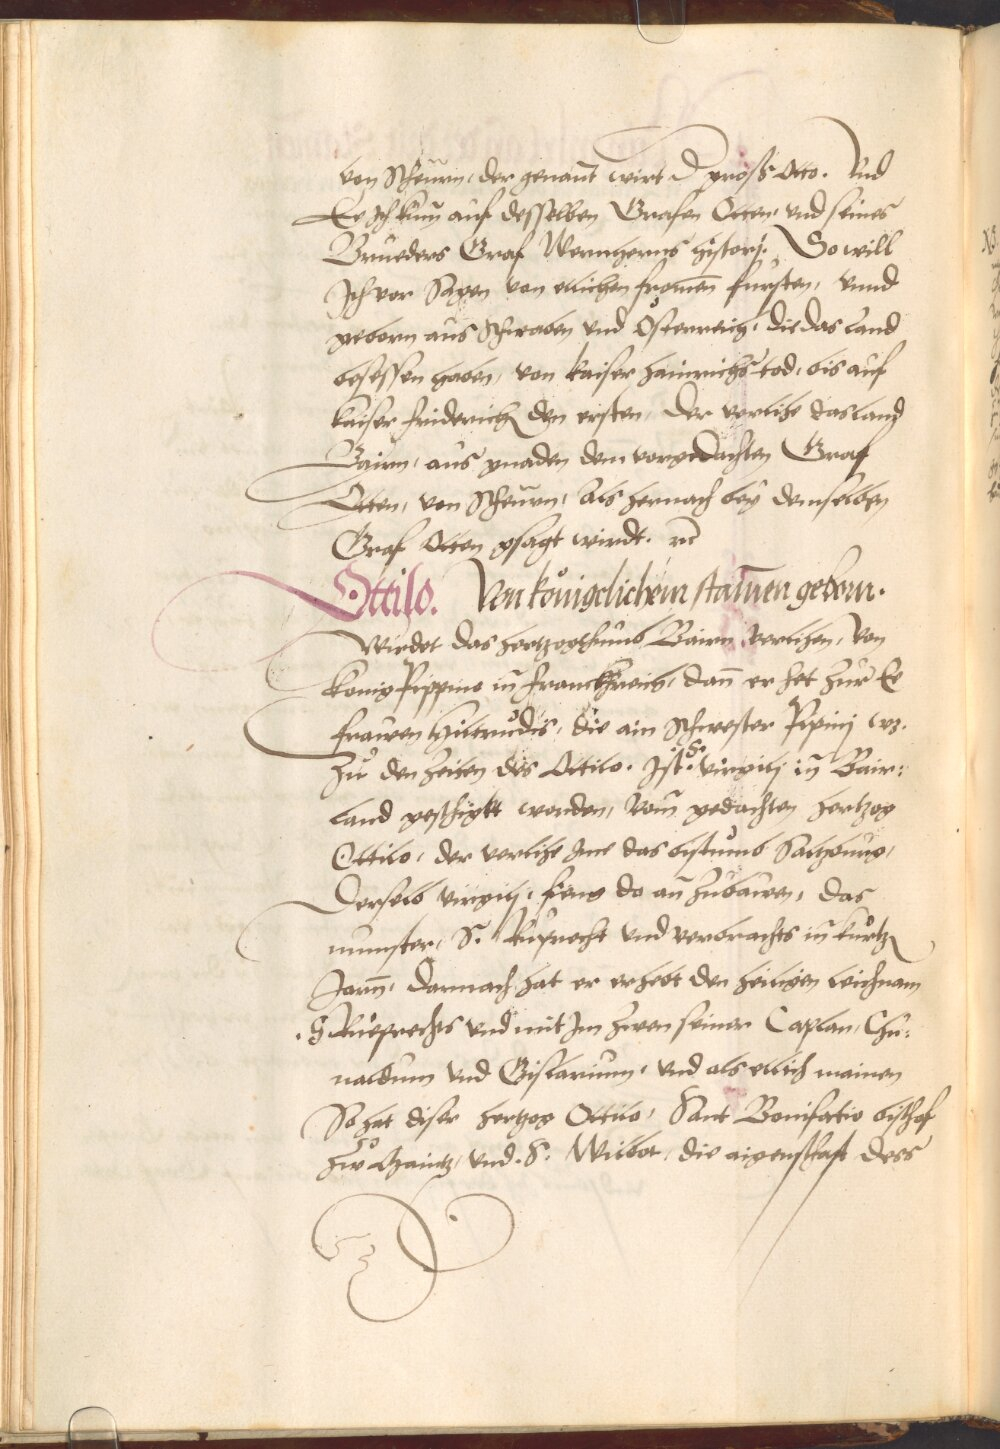 von Scheurn, der genant wirt d groß Otto. Vnd
Ee ich kum auf desselben Grafen Otten, vnd seines
Brueders Graf Wernherns histori. So will
Ich vor Sagen von ettlichen fromen fursten, vnnd
geborn aus Schwaben vnd Österreich, die das land
besessen haben, von kaiser hainrichs tod, bis auf
kaiser friderich den ersten, der verlihe das land
Bairn, aus gnaden dem vorgedachten Graf
Otten, von Scheurn, als hernach bey demselben
Graf Otten gsagt wirdt. rc
Ottilo. Von königelichem stamen geborn.
Wirdet das hertzogthumb Bairn verlihen, von
konig Pippino in franckhreich, dan er het zur Ee
frawen Hiltrudis, die ain Schwester Pipinj wz.
Zu den zeiten des Ottilo. Ist S. virgilj in Bair:
land geschigkt worden, vom gedachten hertzog
Ottilo, der verlihe Ime das bistumb Saltzburg,
Derselb virgilj, fieng da an zubawen, das
munster, S. Ruprecht vnd verbrachts in kurtz
Jarn, darnach hat er erhebt den heiligen leichnam
S. Rueprechts vnd mit Im zwen seiner Caplan, Chu:
naldum vnd Gislarium, vnd als ettlich mainen
So hat diser hertzog Ottilo, Sant Bonifatio bischof
zw Maintz, vnd S. Wilbot, die aigenschaft dess